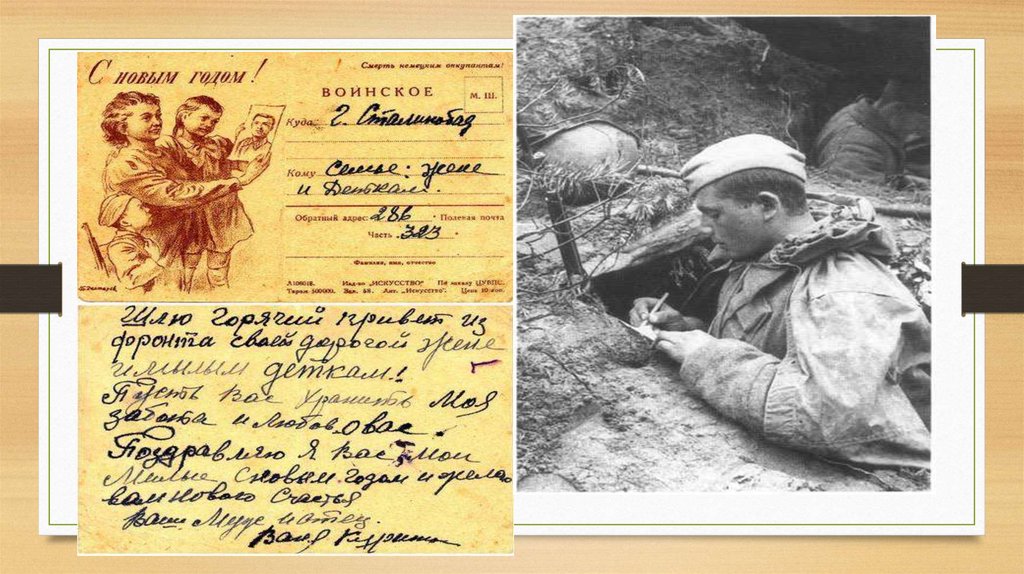 С новым годом!
Смерть немецким оккупантам!
ВОИНСКОЕ
М. Ш.
Куда: г. Сталинабад
Кому семье: жене
и Деткам.
Обратный адрес 286 Полевая почта
Часть 323
Фамилия, имя, отчество
Изд-во „ИСКУССТВО“ По заказу ЦУВПС.
Тираж 500000. Зак. 58. Ант. „Искусство“. Цена 10 коп.
Шлю горячий привет из
фронта своей дорогой жене
и милым деткам!
Пусть вас хранить моя
забота и любов о вас.
Поздравляю я вас мои
милые с новым годом и желаю
вам нового счастья
ваш муж и отец.
Ваня